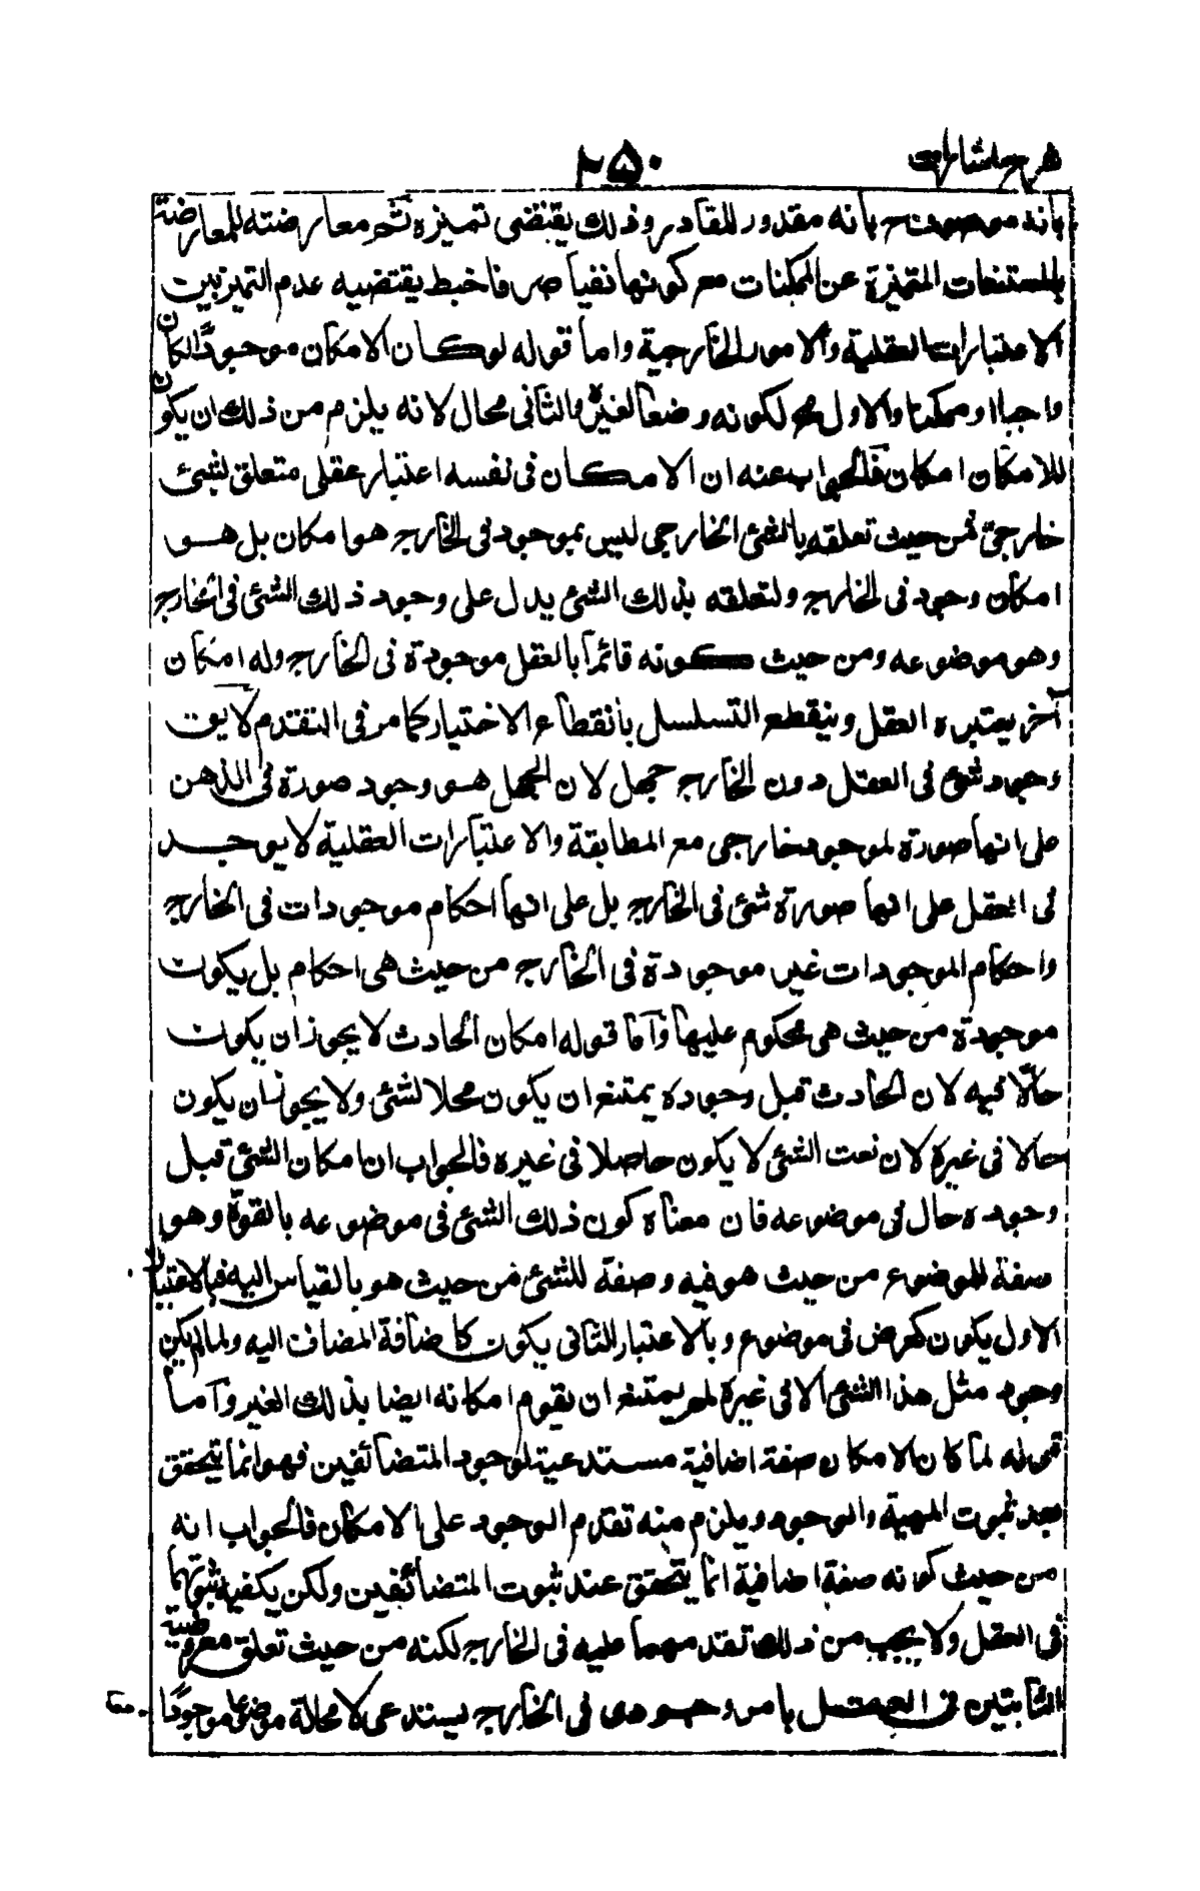 شرح اشارات
٢٥٠
بانه موصوف بانه مقدور للقادر وذلك يقتضى تميزه ثم معارضته للمعارضة
بالممتنعات المتميزة عن الممكنات مع كونها نفيا صرفا خبط يقتضيه عدم التميز بين
الاعتبارات العقلية والامور الخارجية واما قوله لو كان الامكان موجودا لكان
واجبا او ممكنا والاول مح لكونه وضعا لغيره والثانى محال لانه يلزم من ذلك ان يكون
للامكان امكان فالجواب عنه ان الامكان فى نفسه اعتبار عقلى متعلق بشئ
خارجى فمن حيث تعلقه بالشئ الخارجى ليس بموجود فى الخارج هو امكان بل هو
امكان وجود فى الخارج ولتعلقه بذلك الشئ يدل على وجود ذلك الشئ فى الخارج
وهو موضوعه ومن حيث كونه قائما بالعقل موجودة فى الخارج وله امكان
آخر يعتبره العقل وينقطع التسلسل بانقطاع الاختيار كما مر فى التقدم لا يق
وجود شئ فى العقل دون الخارج جهل لان الجهل هو وجود صورة فى الذهن
على انها صورة لموجود خارجى مع المطابقة والاعتبارات العقلية لا يوجد
فى العقل على انها صورة شئ فى الخارج بل على انها احكام موجودات فى الخارج
واحكام الموجودات غير موجودة فى الخارج من حيث هى احكام بل يكون
موجودة من حيث هى محكوم عليها واما قوله امكان الحادث لا يجوز ان يكون
حالا فيه لان الحادث قبل وجوده يمتنع ان يكون محلا لشئ ولا يجوز ان يكون
حالا فى غيره لان نعت الشئ لا يكون حاصلا فى غيره فالجواب ان امكان الشئ قبل
وجوده حال فى موضوعه فان معناه كون ذلك الشئ فى موضوعه بالقوة وهو
صفة للموضوع من حيث هو فيه وصفة للشئ من حيث هو بالقياس اليه فبالاعتبار
الاول يكون كعرض فى موضوع وبالاعتبار الثانى يكون كاضافة المضاف اليه ولما لم يكن
وجود مثل هذا الشئ الا فى غيره لم يمتنع ان يقوم امكانه ايضا بذلك الغير واما
قوله لما كان الامكان صفة اضافية مستدعية لوجود المتضائفين فهو انما يتحقق
بعد ثبوت المهية والوجود ويلزم منه تقدم الوجود على الامكان فالجواب انه
من حيث كونه صفة اضافية انما يتحقق عند ثبوت المتضائفين ولكن يكفيه ثبوتهما
فى العقل ولا يجب من ذلك تقدمهما عليه فى الخارج لكنه من حيث تعلق معروضية
الثابتين فى العقل بامر وجودى فى الخارج يستدعى لا محالة موضوعا موجودا